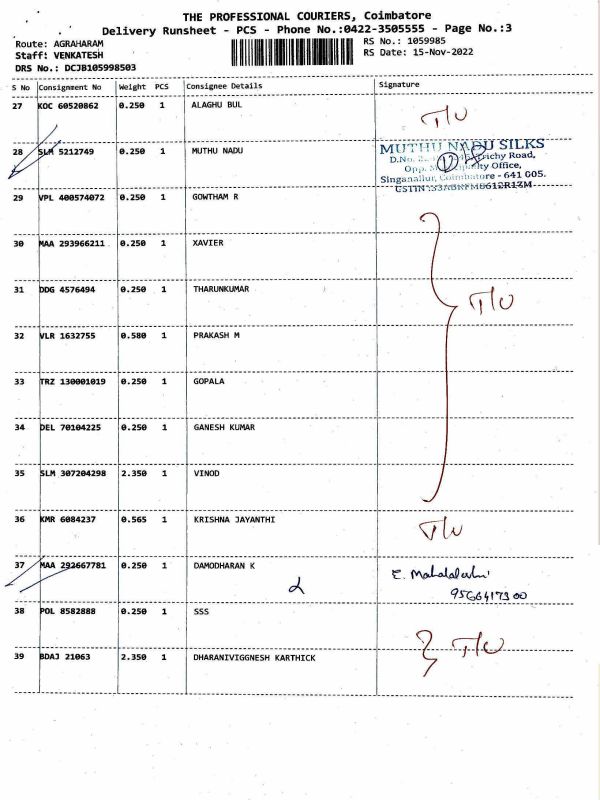 THE PROFESSIONAL COURIERS, Coimbatore
Delivery Runsheet - PCS - Phone No.:0422-3505555 - Page No.:3
Route: AGRAHARAM
RS No.: 1059985
Staff: VENKATESH
RS Date: 15-Nov-2022
DRS No.: DCJB105998503
S No Consignment No Weight PCS Consignee Details Signature
27 KOC 60520862 0.250 1 ALAGHU BUL T/U
28 SLM 5212749 0.250 1 MUTHU NADU
MUTHU NADU SILKS
D.No. Trichy Road,
Opp. Municipality Office,
Singanallur, Coimbatore - 641 005.
29 VPL 400574072 0.250 1 GOWTHAM R
30 MAA 293966211 0.250 1 XAVIER
31 DDG 4576494 0.250 1 THARUNKUMAR T/U
32 VLR 1632755 0.580 1 PRAKASH M
33 TRZ 130001019 0.250 1 GOPALA
34 DEL 70104225 0.250 1 GANESH KUMAR
35 SLM 307204298 2.350 1 VINOD
36 KMR 6084237 0.565 1 KRISHNA JAYANTHI T/U
37 MAA 292667781 0.250 1 DAMODHARAN K
38 POL 8582888 0.250 1 SSS
T/U
39 BDAJ 21063 2.350 1 DHARANIVIGGNESH KARTHICK